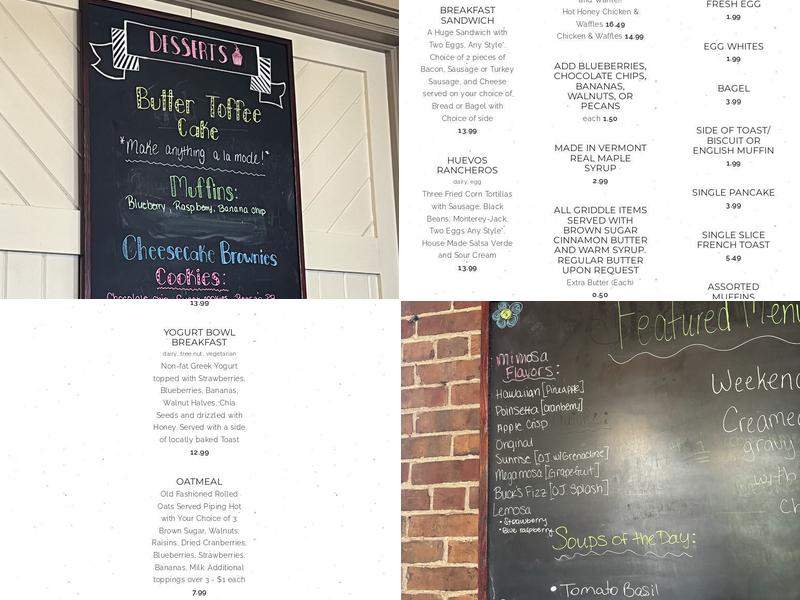 DESSERTS
Butter Toffee
Cake
*Make anything a la mode!*
Muffins:
Blueberry, Raspberry, Banana chip
Cheesecake Brownies
Cookies:
BREAKFAST
SANDWICH
A Huge Sandwich with
Two Eggs, Any Style*,
Choice of 2 pieces of
Bacon, Sausage or Turkey
Sausage, and Cheese
served on your choice of,
Bread or Bagel with
Choice of side
13.99
HUEVOS
RANCHEROS
dairy, egg
Three Fried Corn Tortillas
with Sausage, Black
Beans, Monterey-Jack,
Two Eggs Any Style*,
House Made Salsa Verde
and Sour Cream
13.99
Hot Honey Chicken &
Waffles 16.49
Chicken & Waffles 14.99
ADD BLUEBERRIES,
CHOCOLATE CHIPS,
BANANAS,
WALNUTS, OR
PECANS
each 1.50
MADE IN VERMONT
REAL MAPLE
SYRUP
2.99
ALL GRIDDLE ITEMS
SERVED WITH
BROWN SUGAR
CINNAMON BUTTER
AND WARM SYRUP.
REGULAR BUTTER
UPON REQUEST
Extra Butter (Each)
0.50
FRESH EGG
1.99
EGG WHITES
1.99
BAGEL
3.99
SIDE OF TOAST/
BISCUIT OR
ENGLISH MUFFIN
1.99
SINGLE PANCAKE
3.99
SINGLE SLICE
FRENCH TOAST
5.49
ASSORTED
MUFFINS
13.99
YOGURT BOWL
BREAKFAST
dairy, tree nut, vegetarian
Non-fat Greek Yogurt
topped with Strawberries,
Blueberries, Bananas,
Walnut Halves, Chia
Seeds and drizzled with
Honey. Served with a side
of locally baked Toast
12.99
OATMEAL
Old Fashioned Rolled
Oats Served Piping Hot
with Your Choice of 3:
Brown Sugar, Walnuts,
Raisins, Dried Cranberries,
Blueberries, Strawberries,
Bananas, Milk. Additional
toppings over 3 - $1 each
7.99
Featured Menu
Mimosa
Flavors:
Hawaiian [Pineapple]
Poinsetta [Cranberry]
Apple Crisp
Original
Sunrise [OJ w/Grenadine]
Megamosa [Grapefruit]
Buck's Fizz [OJ Splash]
Lemosa
• Strawberry
• Blue raspberry
Weekend
Creamed
gravy
with b
Ch
Soups of the Day:
• Tomato Basil